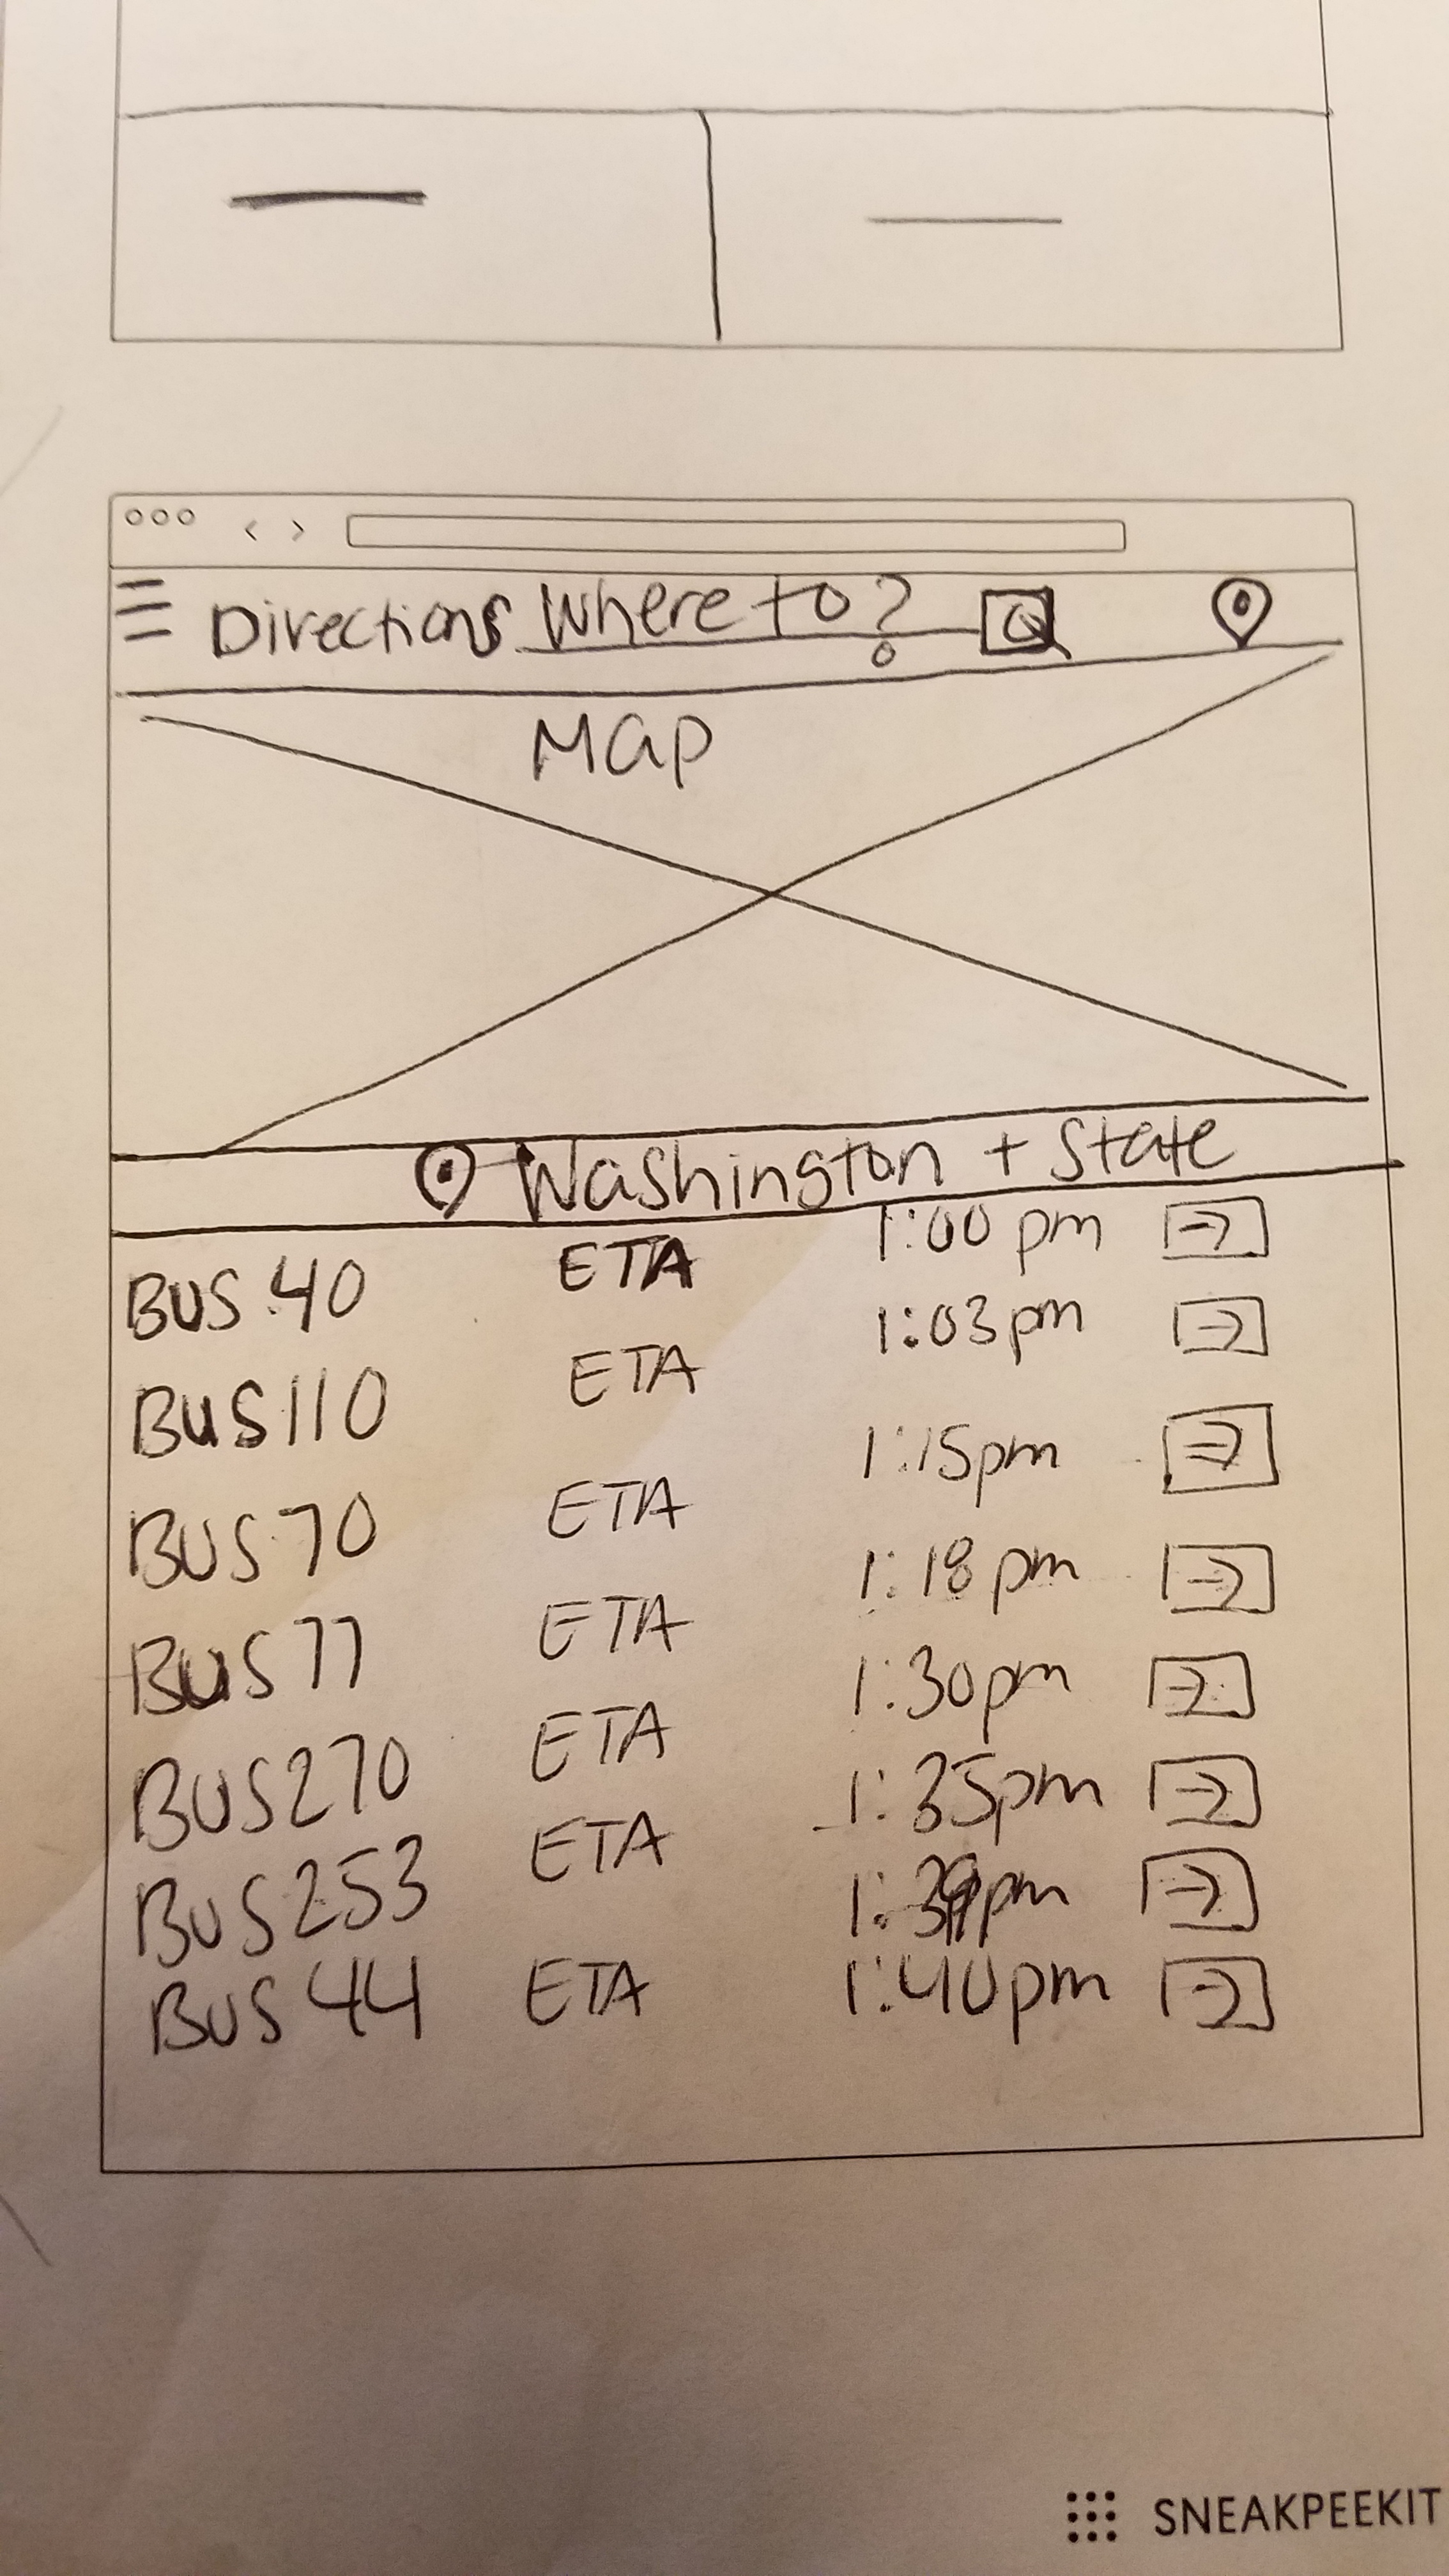 Directions Where to?
Map
Washington + State
BUS 40 ETA 1:00 pm
BUS 110 ETA 1:03pm
BUS 70 ETA 1:15pm
BUS 77 ETA 1:18 pm
BUS 270 ETA 1:30pm
BUS 253 ETA 1:35pm
BUS 44 ETA 1:40pm
SNEAKPEEKIT